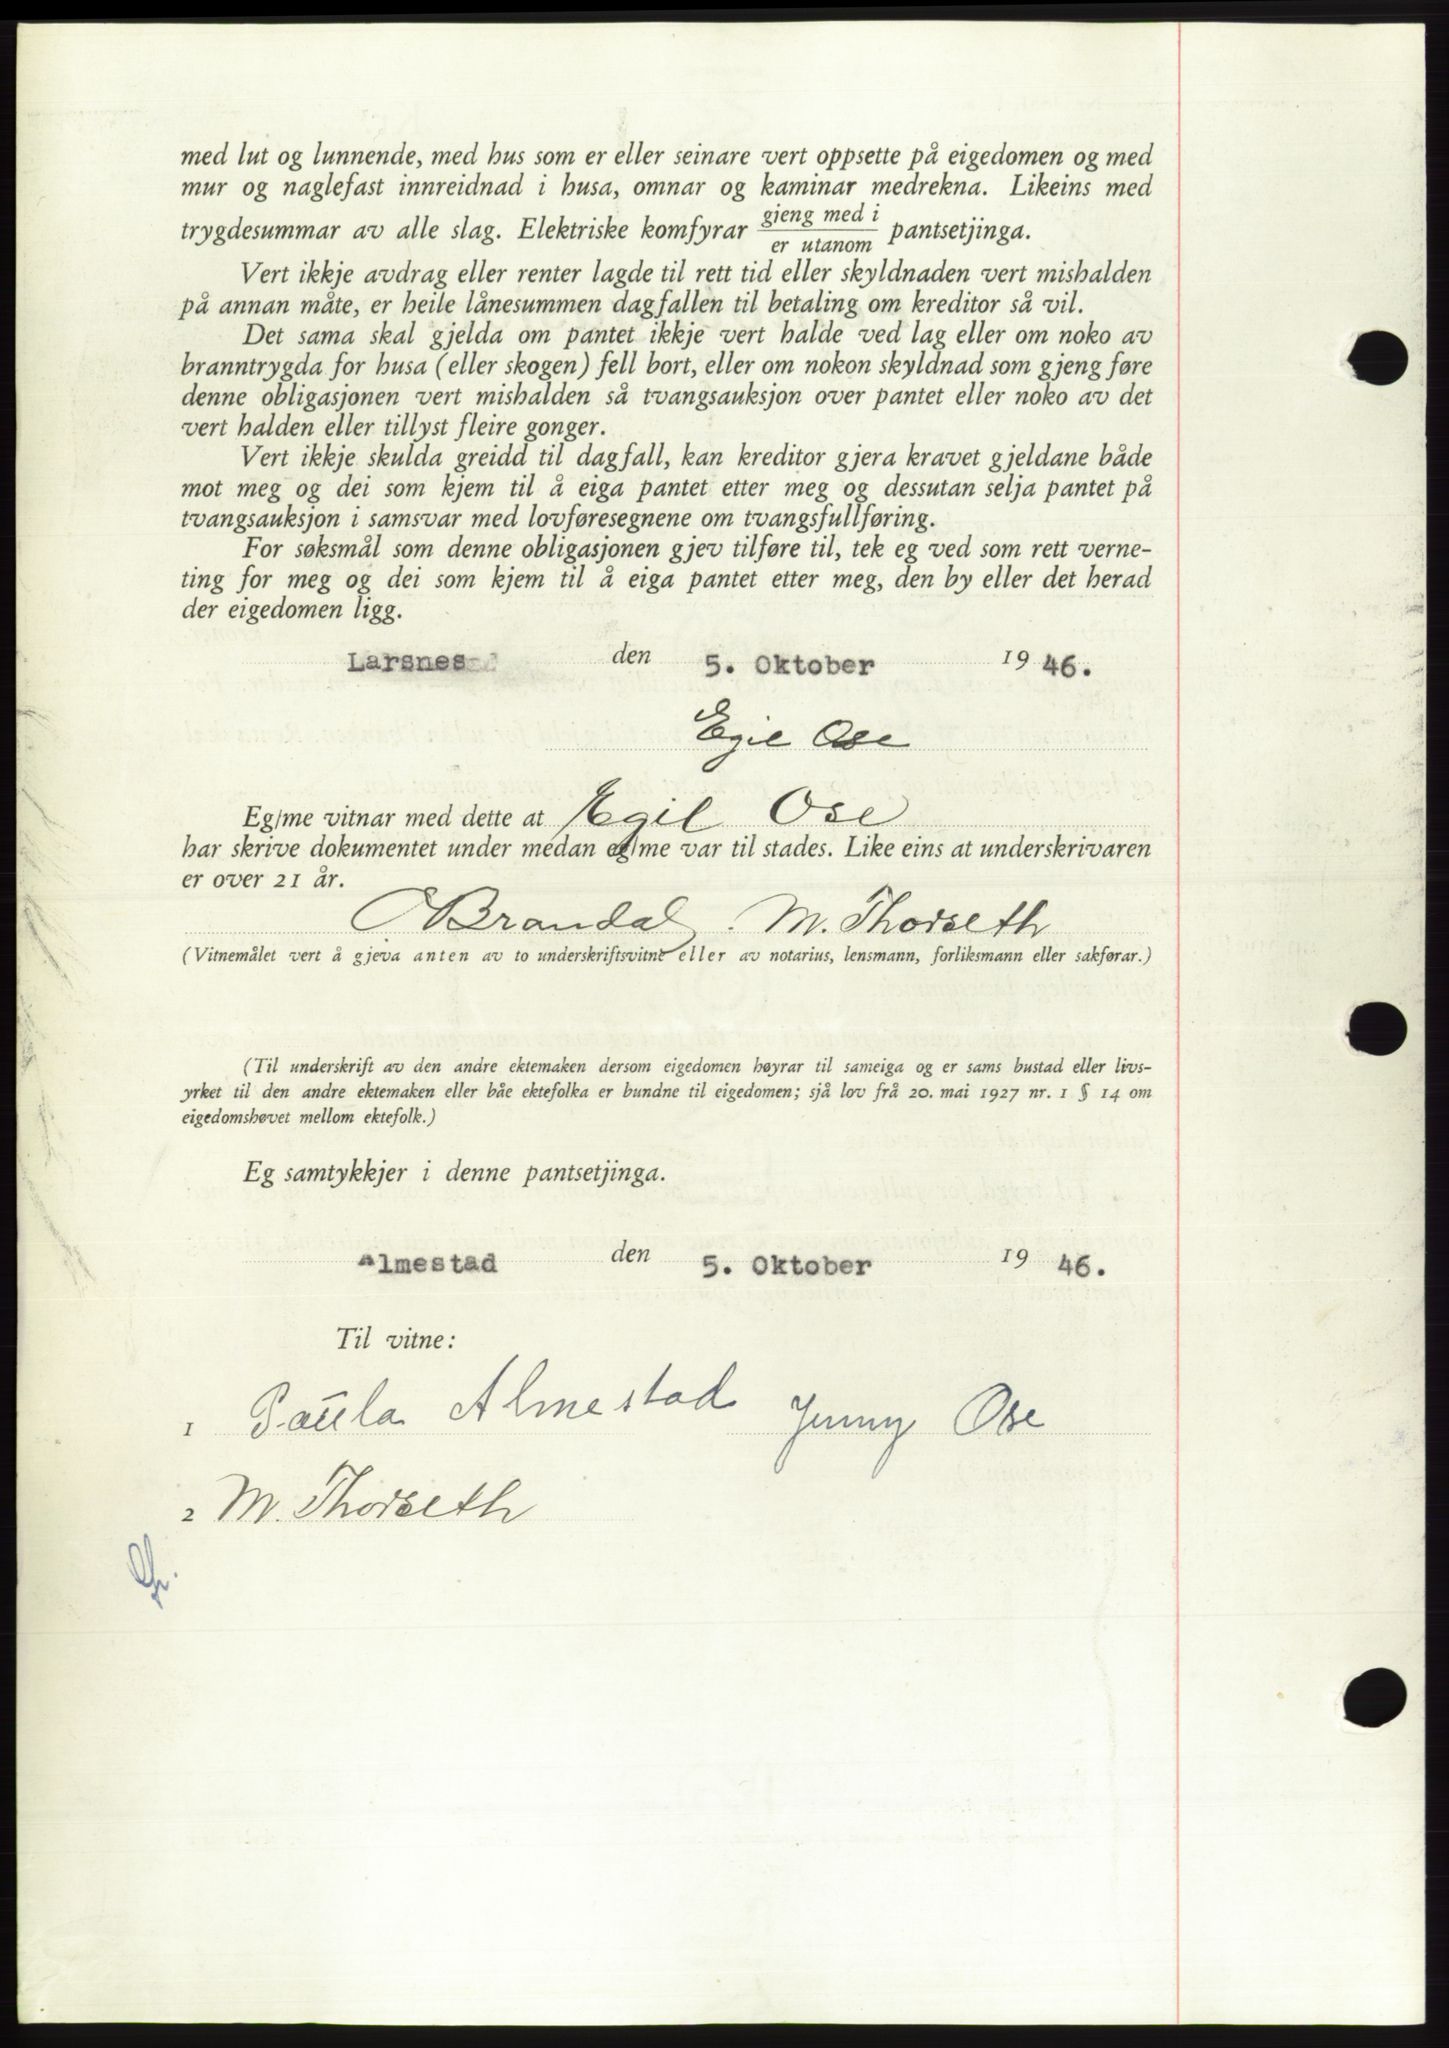 med lut og lunnende, med hus som er eller seinare vert oppsette på eigedomen og med
mur og naglefast innreidnad i husa, omnar og kaminar medrekna. Likeins med
trygdesummar av alle slag. Elektriske komfyrar gjeng med i / er utanom pantsetjinga.
Vert ikkje avdrag eller renter lagde til rett tid eller skyldnaden vert mishalden
på annan måte, er heile lånesummen dagfallen til betaling om kreditor så vil.
Det sama skal gjelda om pantet ikkje vert halde ved lag eller om noko av
branntrygda for husa (eller skogen) fell bort, eller om nokon skyldnad som gjeng føre
denne obligasjonen vert mishalden så tvangsauksjon over pantet eller noko av det
vert halden eller tillyst fleire gonger.
Vert ikkje skulda greidd til dagfall, kan kreditor gjera kravet gjeldane både
mot meg og dei som kjem til å eiga pantet etter meg og dessutan selja pantet på
tvangsauksjon i samsvar med lovføresegnene om tvangsfullføring.
For søksmål som denne obligasjonen gjev tilføre til, tek eg ved som rett verne-
ting for meg og dei som kjem til å eiga pantet etter meg, den by eller det herad
der eigedomen ligg.
Larsnes den 5. Oktober 19 46.
Egil Ose
Eg/me vitnar med dette at Egil Ose
har skrive dokumentet under medan eg/me var til stades. Like eins at underskrivaren
er over 21 år.
Brandal. M. Thorseth
(Vitnemålet vert å gjeva anten av to underskriftsvitne eller av notarius, lensmann, forliksmann eller sakførar.)
(Til underskrift av den andre ektemaken dersom eigedomen høyrar til sameiga og er sams bustad eller livs-
yrket til den andre ektemaken eller båe ektefolka er bundne til eigedomen; sjå lov frå 20. mai 1927 nr. 1 § 14 om
eigedomshøvet mellom ektefolk.)
Eg samtykkjer i denne pantsetjinga.
Almestad den 5. Oktober 19 46.
Til vitne:
1 Paula Almestad Jenny Ose
2 M. Thorseth